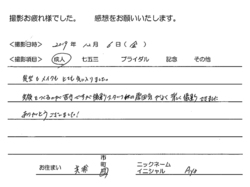 撮影お疲れ様でした。 感想をお願いいたします。
<撮影日時> 2019 年 12 月 6 日 (金)
<撮影項目> 成人 七五三 ブライダル 記念 その他
髪型もメイクもとても気に入りました。
笑顔をつくるのが苦手ですが撮影スタッフ様の雰囲気がよく楽しく撮影できました
ありがとうございました!
お住まい 市町 ニックネーム
イニシャル Aya